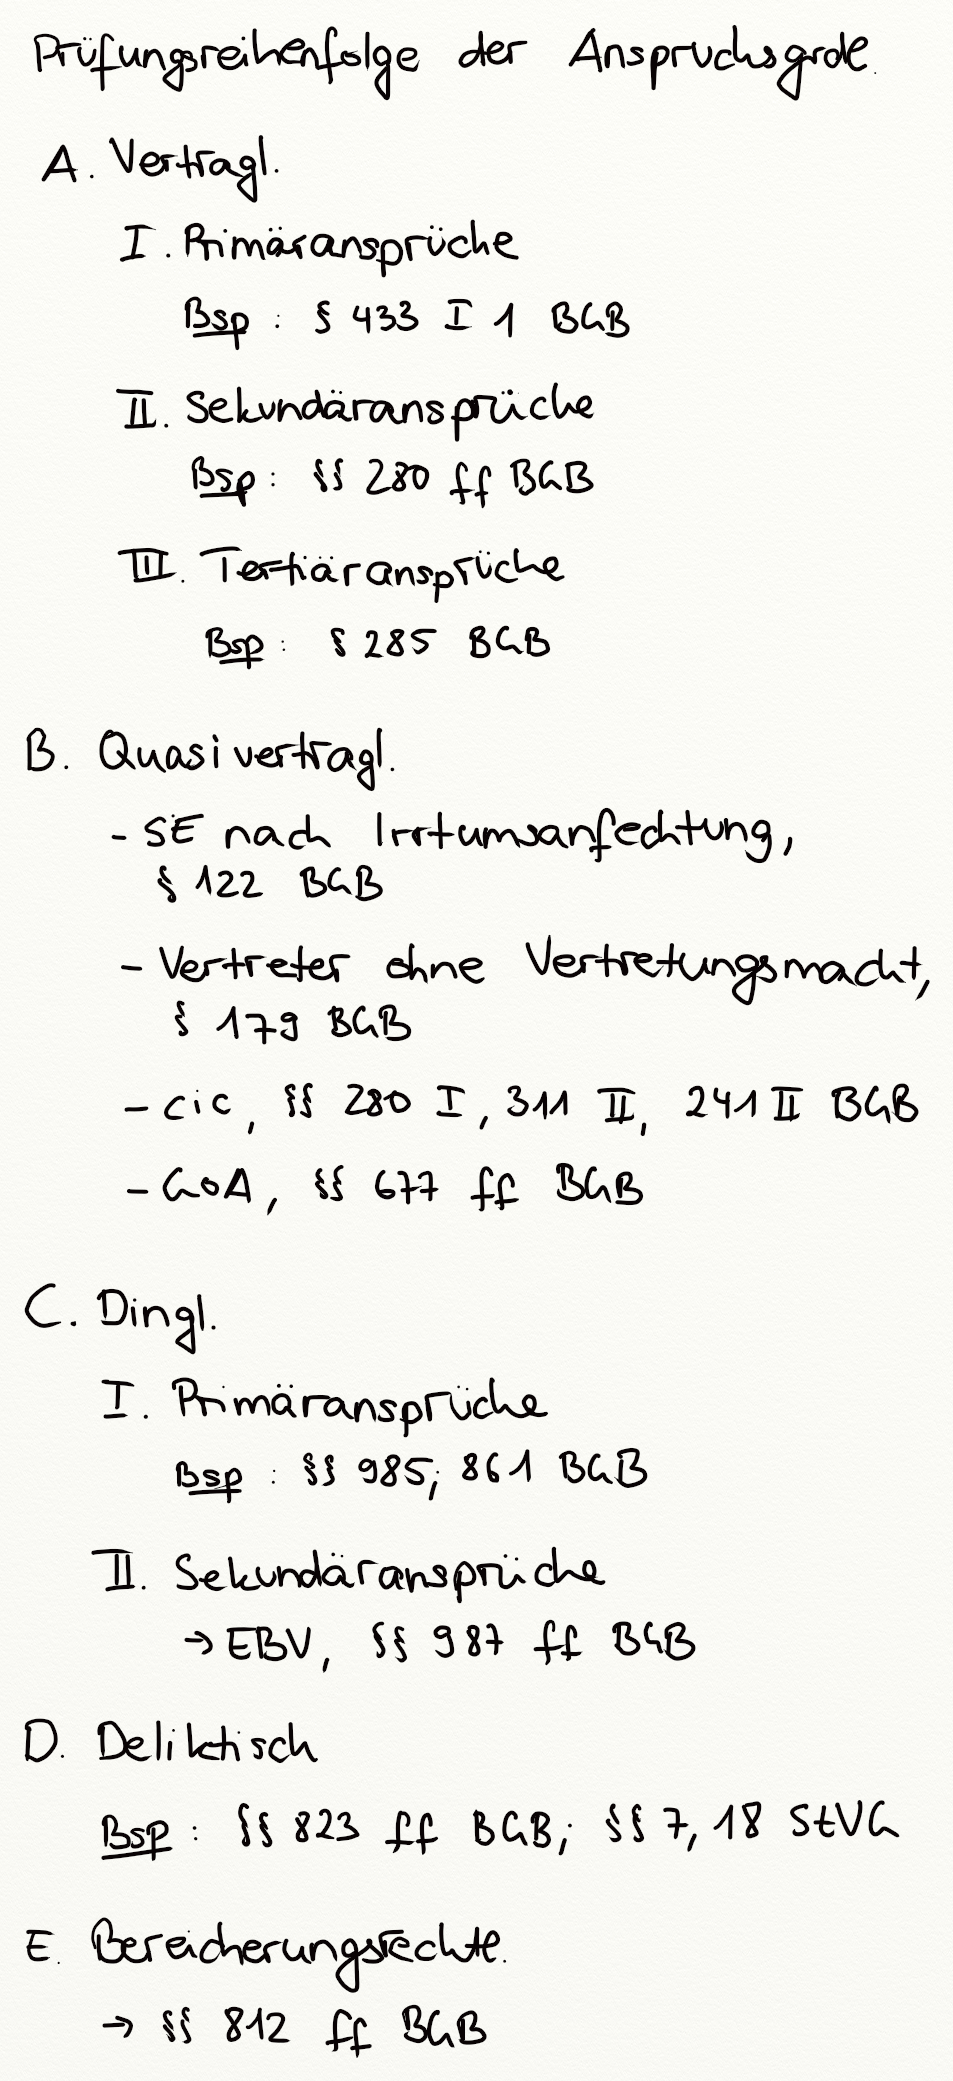 Prüfungsreihenfolge der Anspruchsgrdl.
A. Vertragl.
I. Primäransprüche
Bsp: § 433 I 1 BGB
II. Sekundäransprüche
Bsp: §§ 280 ff BGB
III. Tertiäransprüche
Bsp: § 285 BGB
B. Quasivertragl.
- SE nach Irrtumsanfechtung,
§ 122 BGB
- Vertreter ohne Vertretungsmacht,
§ 179 BGB
- cic, §§ 280 I, 311 II, 241 II BGB
- GoA, §§ 677 ff BGB
C. Dingl.
I. Primäransprüche
Bsp: §§ 985; 861 BGB
II. Sekundäransprüche
→ EBV, §§ 987 ff BGB
D. Deliktisch
Bsp: §§ 823 ff BGB; §§ 7, 18 StVG
E. Bereicherungsrechte.
→ §§ 812 ff BGB